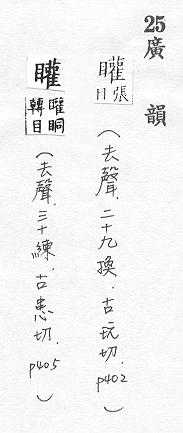 25 廣韻
矔 張目 (去聲.二十九換.古玩切.p402)
矔 矔眮轉目 (去聲.三十練.古患切.p405)